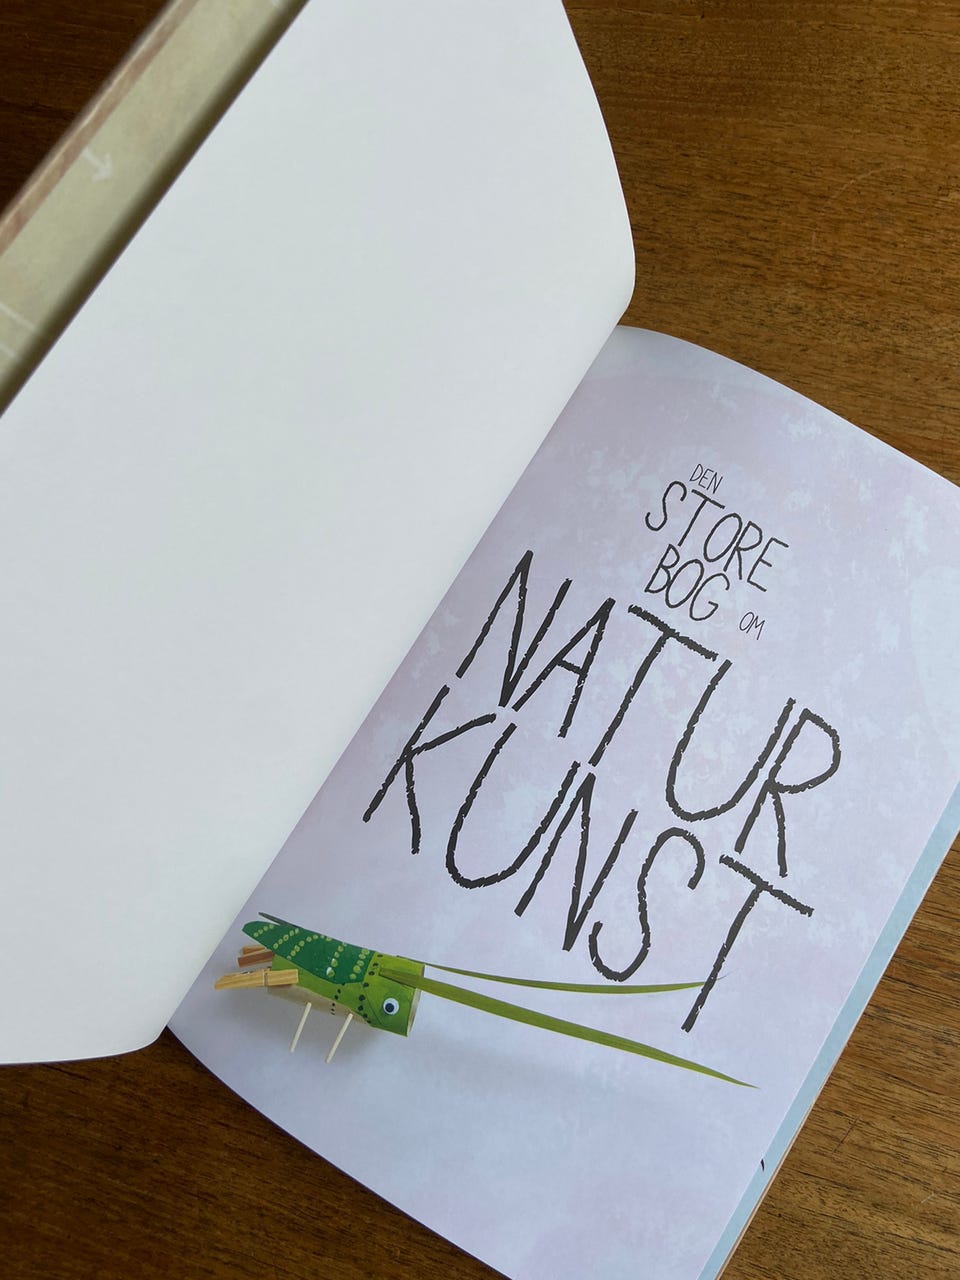 DEN
STORE
BOG OM
NATUR
KUNST